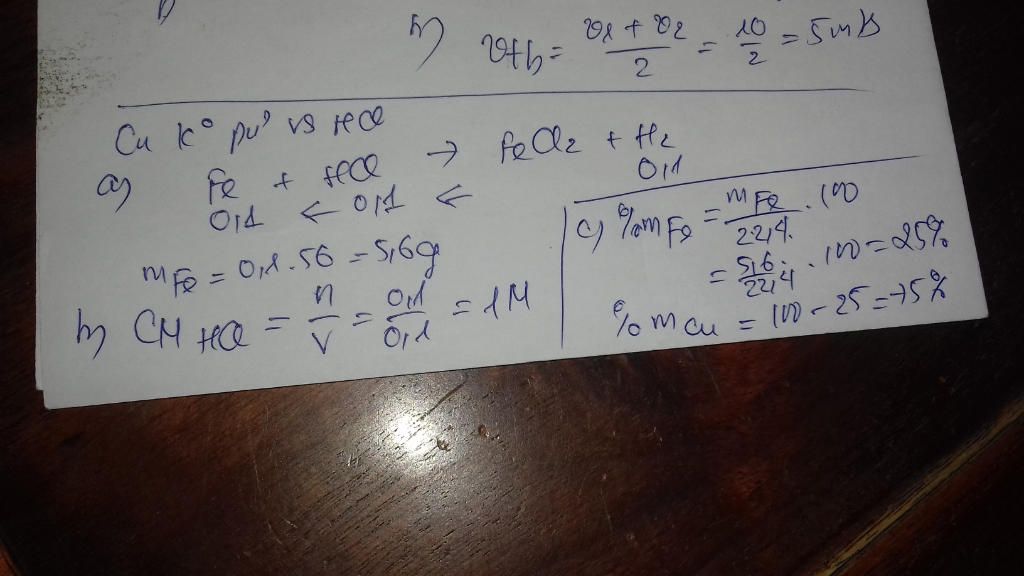 b) vtb = (v1 + v2)/2 = 10/2 = 5 m/s
Cu k° pứ vs HCl
a) Fe + HCl → FeCl2 + H2
0,1 ← 0,1 ← 0,1
mFe = 0,1.56 = 5,6g
b) CM HCl = n/V = 0,1/0,1 = 1M
c) %mFe = mFe/22,4 . 100
= 5,6/22,4 . 100 = 25%
%mCu = 100 - 25 = 75%